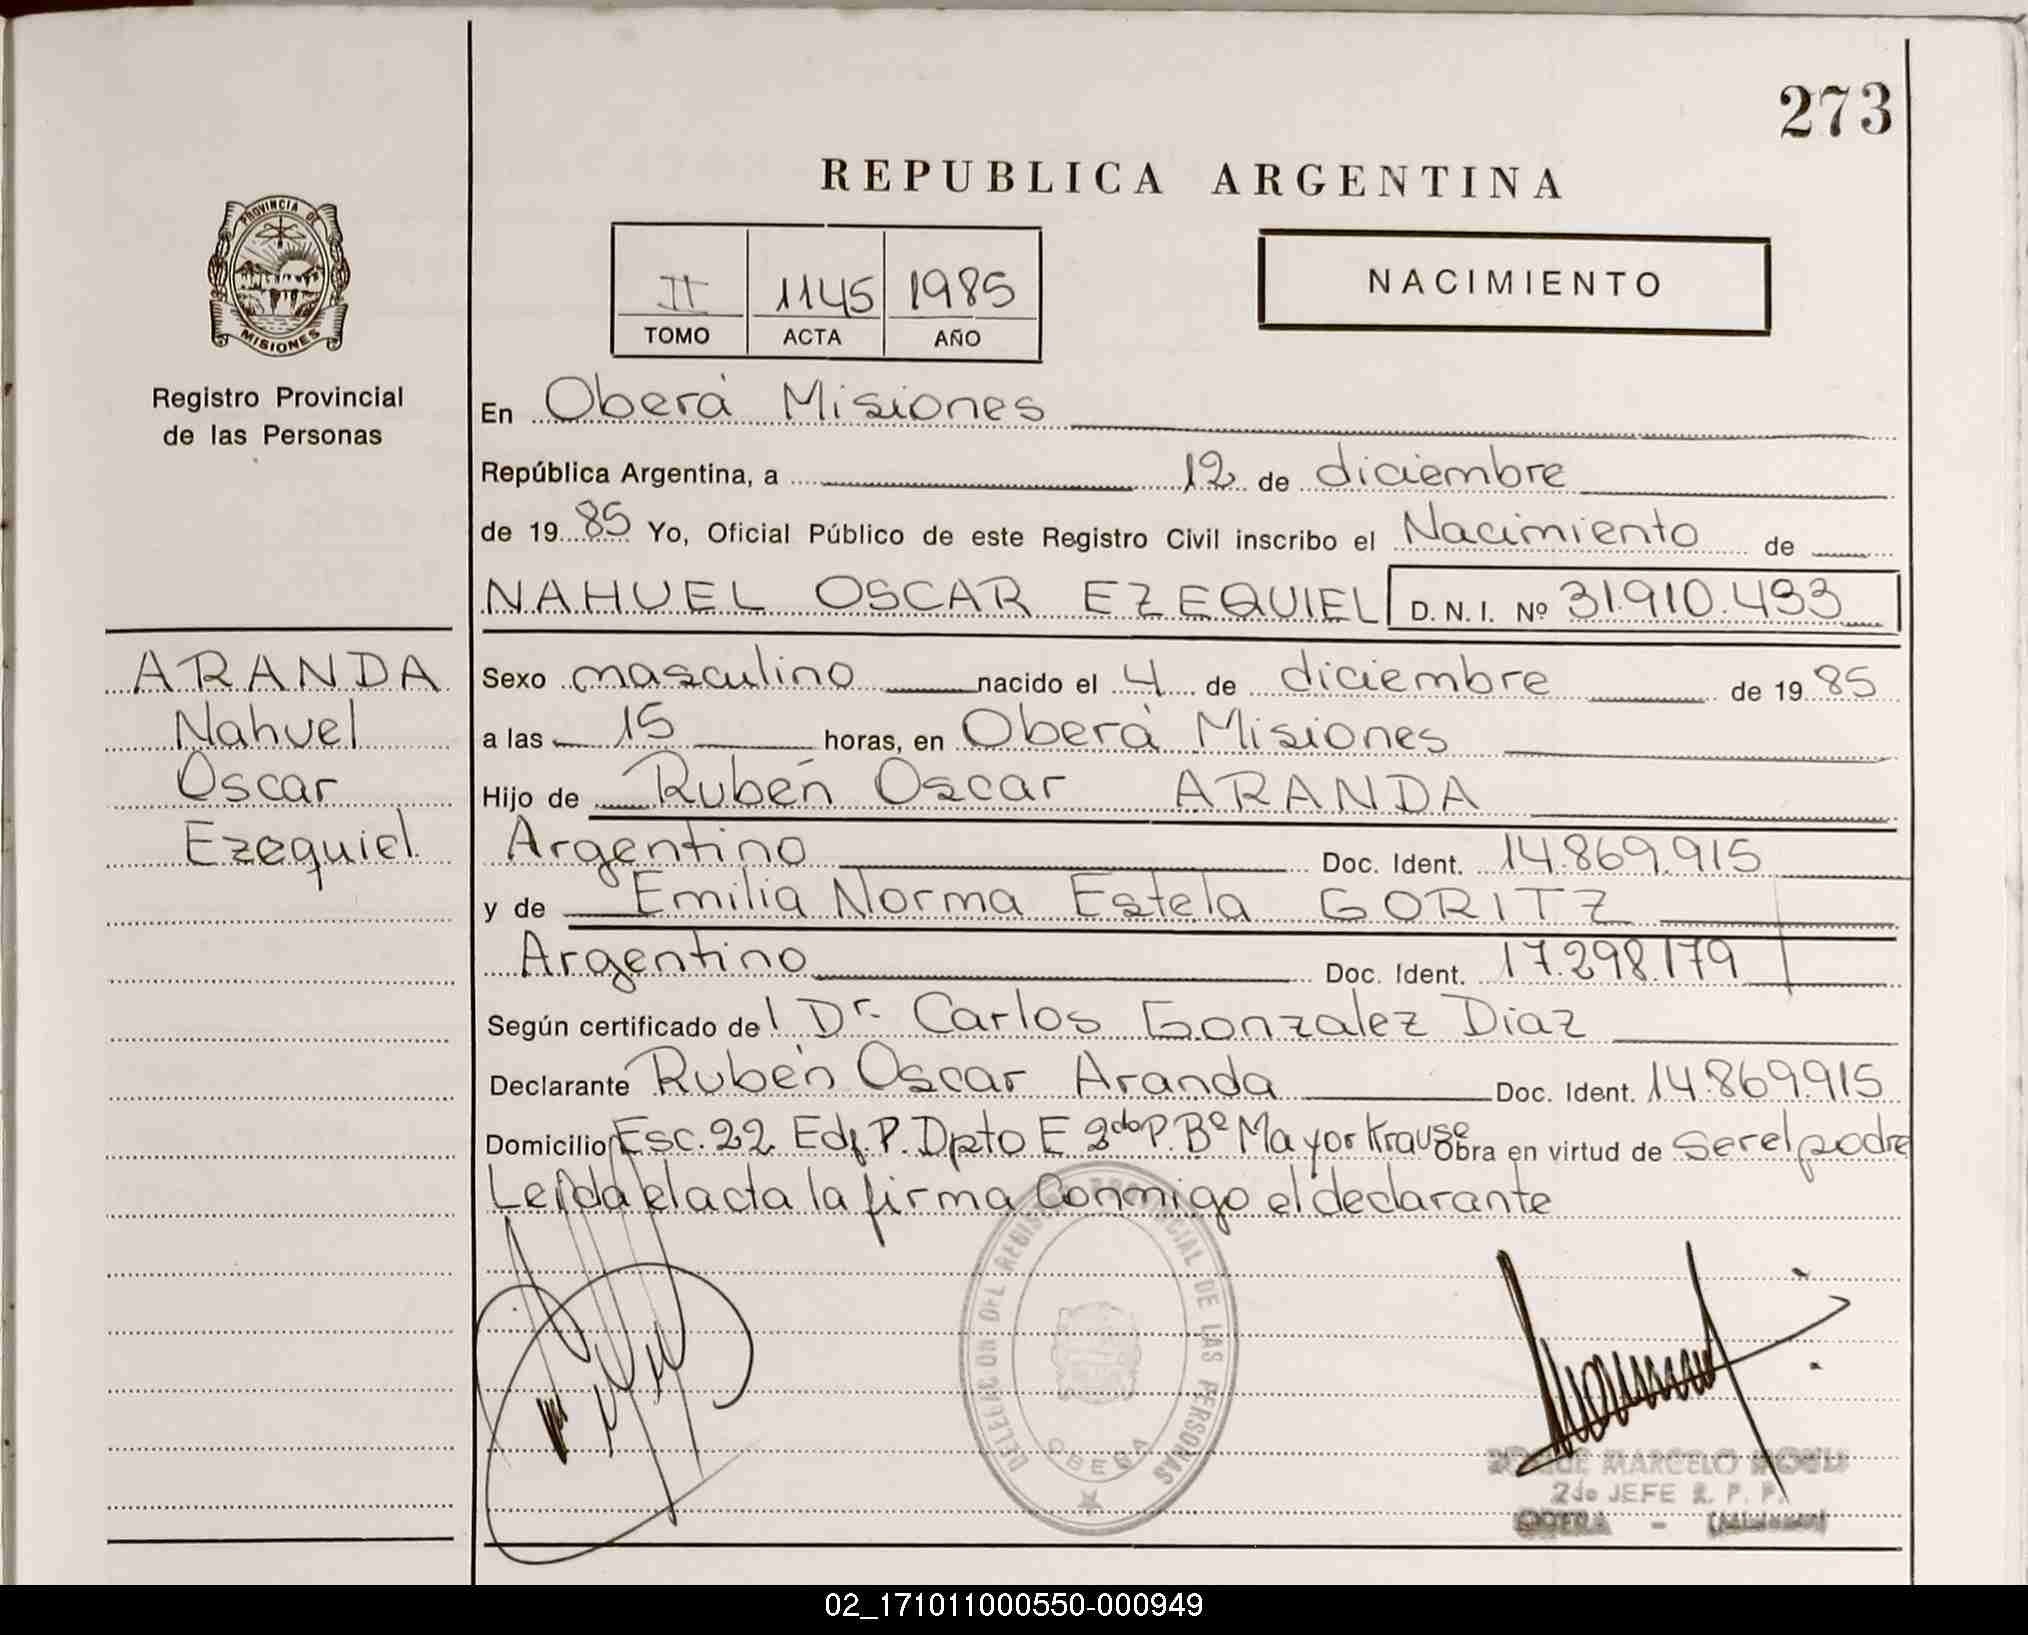 273
REPUBLICA ARGENTINA
PROVINCIA DE
MISIONES
Registro Provincial
de las Personas
II 1145 1985
TOMO ACTA AÑO
NACIMIENTO
En Oberá Misiones
República Argentina, a 12 de diciembre
de 19 85 Yo, Oficial Público de este Registro Civil inscribo el Nacimiento de
NAHUEL OSCAR EZEQUIEL D. N. I. Nº 31.910.433
ARANDA
Nahuel
Oscar
Ezequiel
Sexo masculino nacido el 4 de diciembre de 19 85
a las 15 horas, en Oberá Misiones
Hijo de Rubén Oscar ARANDA
Argentino Doc. Ident. 14.869.915
y de Emilia Norma Estela GORITZ
Argentino Doc. Ident. 17.298.179
Según certificado del Dr. Carlos Gonzalez Diaz
Declarante Rubén Oscar Aranda Doc. Ident. 14.869.915
Domicilio Esc. 22 Edf. P. Dpto E 2do P. Bº Mayor Krause Obra en virtud de ser el padre
Leída el acta la firma conmigo el declarante
DELEGACION DEL REGISTRO PROVINCIAL DE LAS PERSONAS
OBERA
MARCELO
2do JEFE R. P. P.
OBERA - (Misiones)
02_171011000550-000949